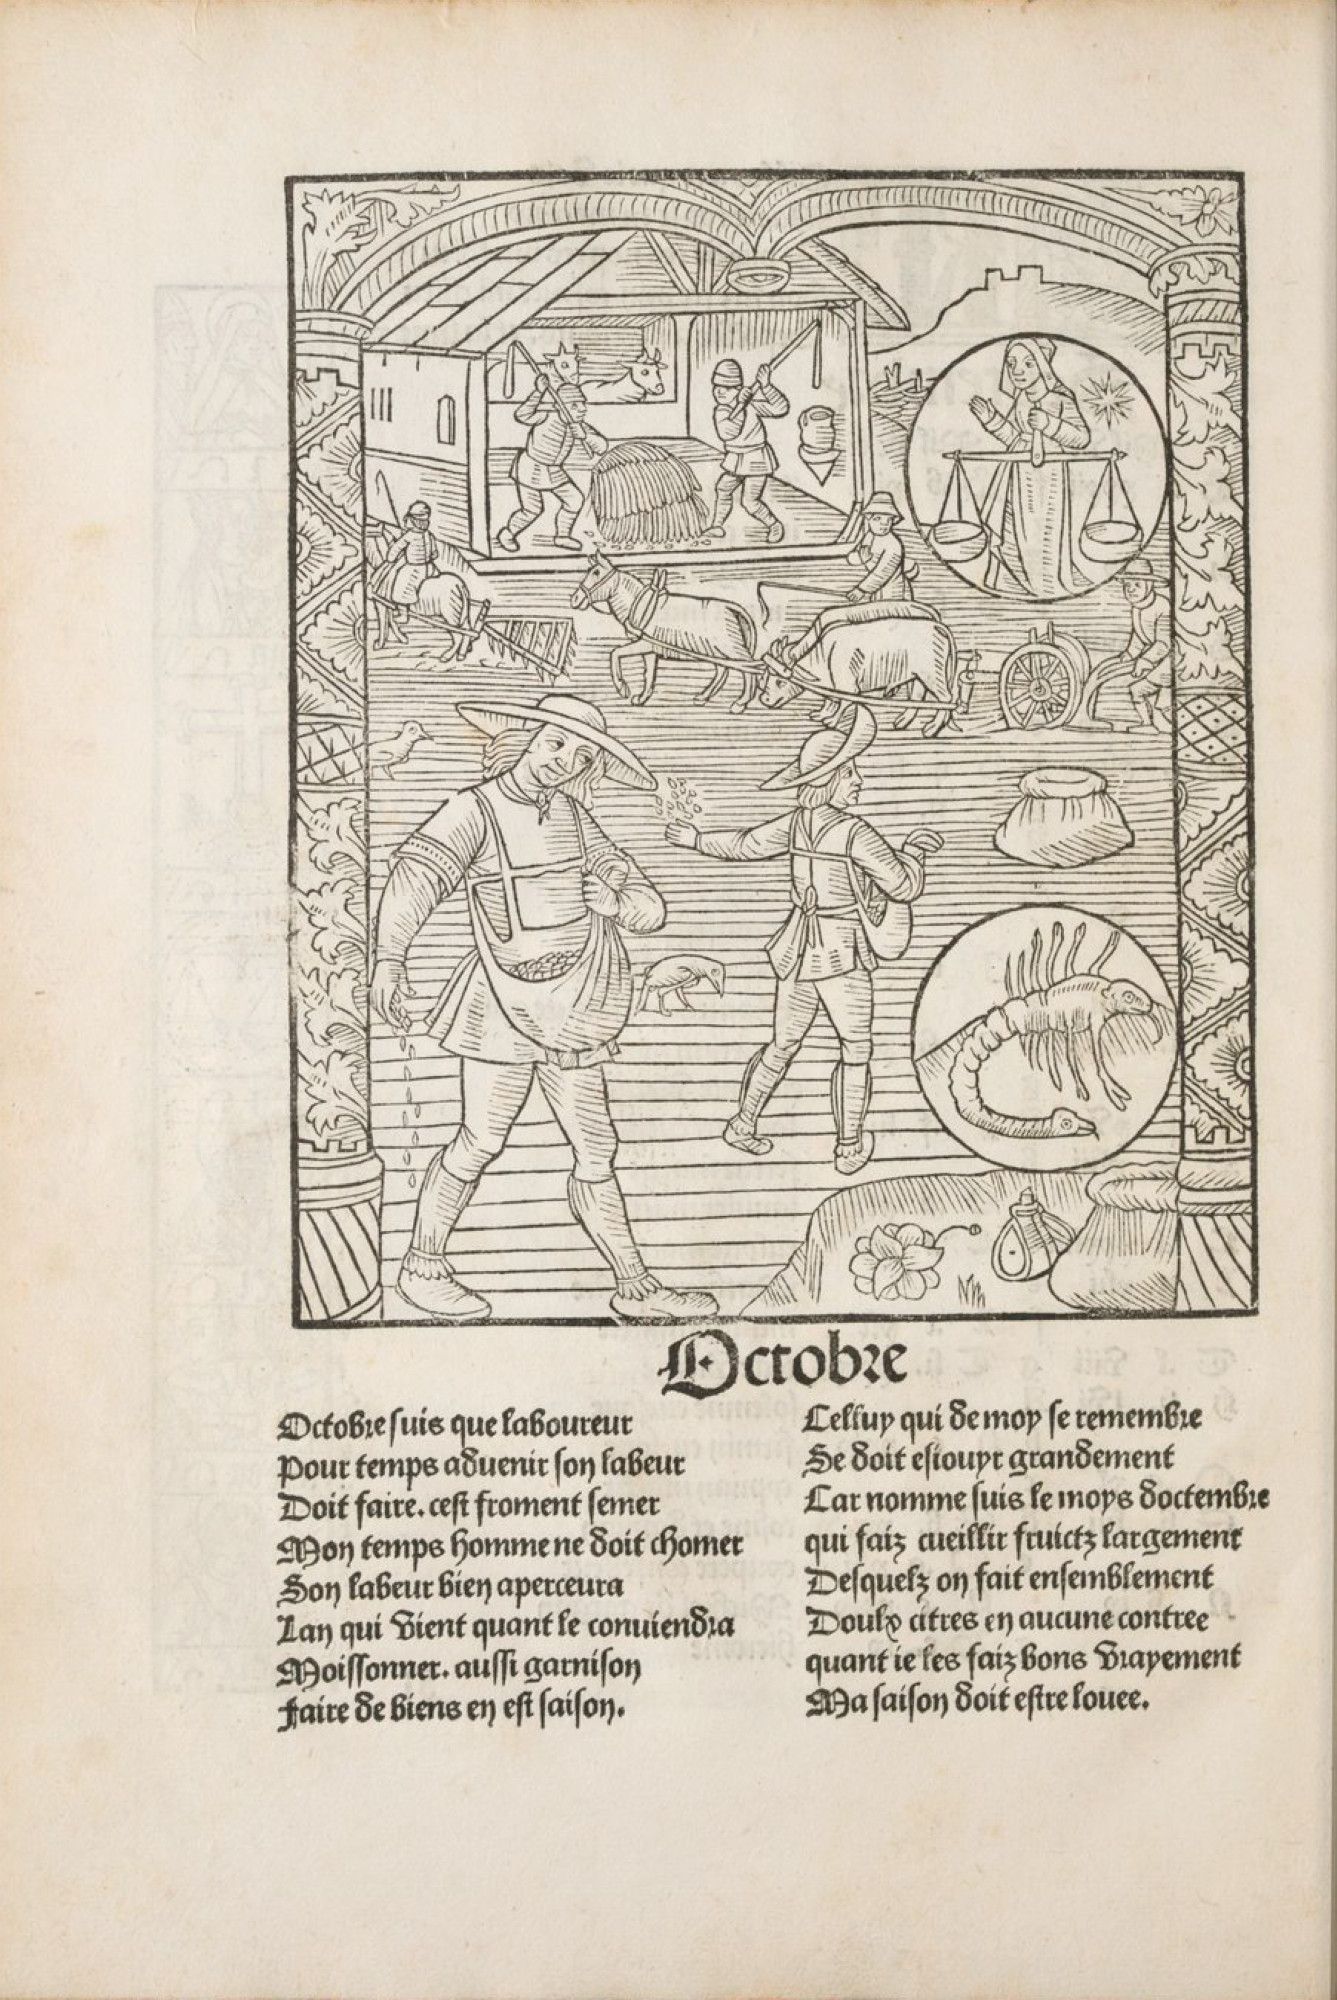 Octobre
Octobre suis que laboureur
Pour temps advenir son labeur
Doit faire. cest froment semer
Mon temps homme ne doit chomer
Son labeur bien aperceura
Lan qui vient quant le conviendra
Moissonner. aussi garnison
Faire de biens en est saison.
Celluy qui de moy se remembre
Se doit esiouyr grandement
Car nomme suis le moys doctembre
qui faiz cueillir fruictz largement
Desquelz on fait ensemblement
Doulx citres en aucune contree
quant ie les faiz bons vrayement
Ma saison doit estre louee.